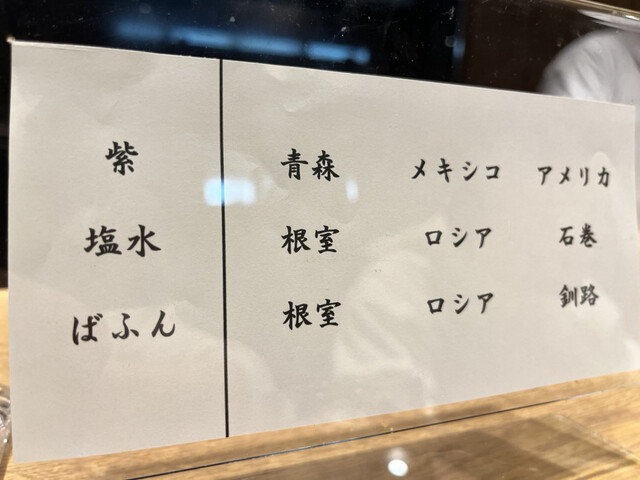 紫 青森 メキシコ アメリカ
塩水 根室 ロシア 石巻
ばふん 根室 ロシア 釧路